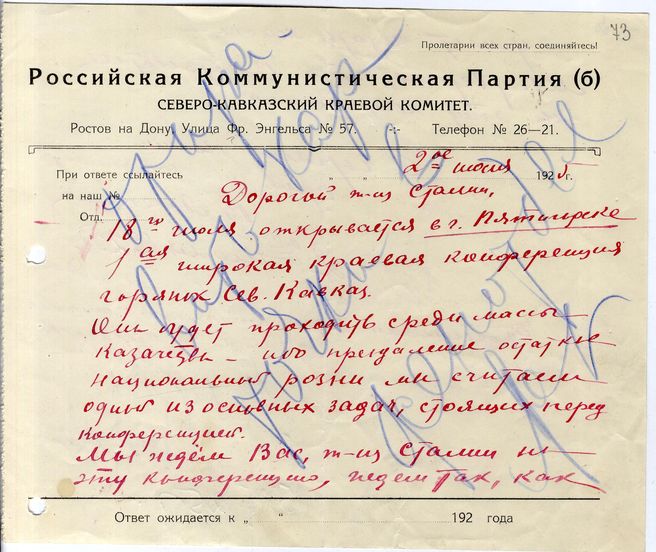 73
Пролетарии всех стран, соединяйтесь!
Российская Коммунистическая Партия (б)
СЕВЕРО-КАВКАЗСКИЙ КРАЕВОЙ КОМИТЕТ.
Ростов на Дону, Улица Фр. Энгельса № 57. -:- Телефон № 26—21.
При ответе ссылайтесь
„ 2ое " июля 1925 г.
на наш №
Дорогой т-щ Сталин,
Отд.
18го июля открывается в г. Пятигорске
1ая широкая краевая конференция
горянок Сев. Кавказ.
Она будет проходить среди массы
казачества – ибо преодаление остатков
национальной розни мы считаем
одной из основных задач, стоящих перед
конференцией.
Мы ждём Вас, т-щ Сталин на
эту конференцию, ждем так, как
Ответ ожидается к „ “ 192 года